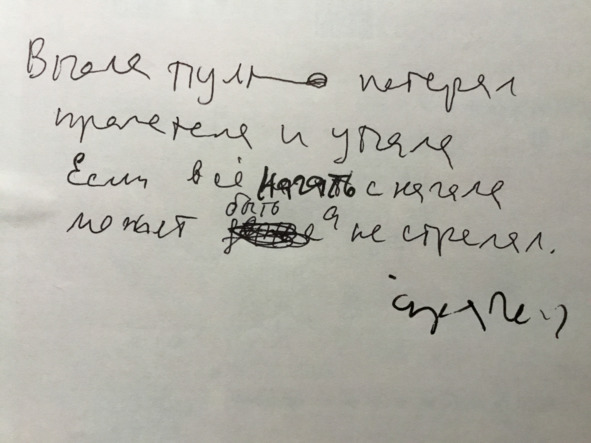 В поле пулю потерял
пролетела и упала
Если всё начать сначала
может быть я не стрелял.